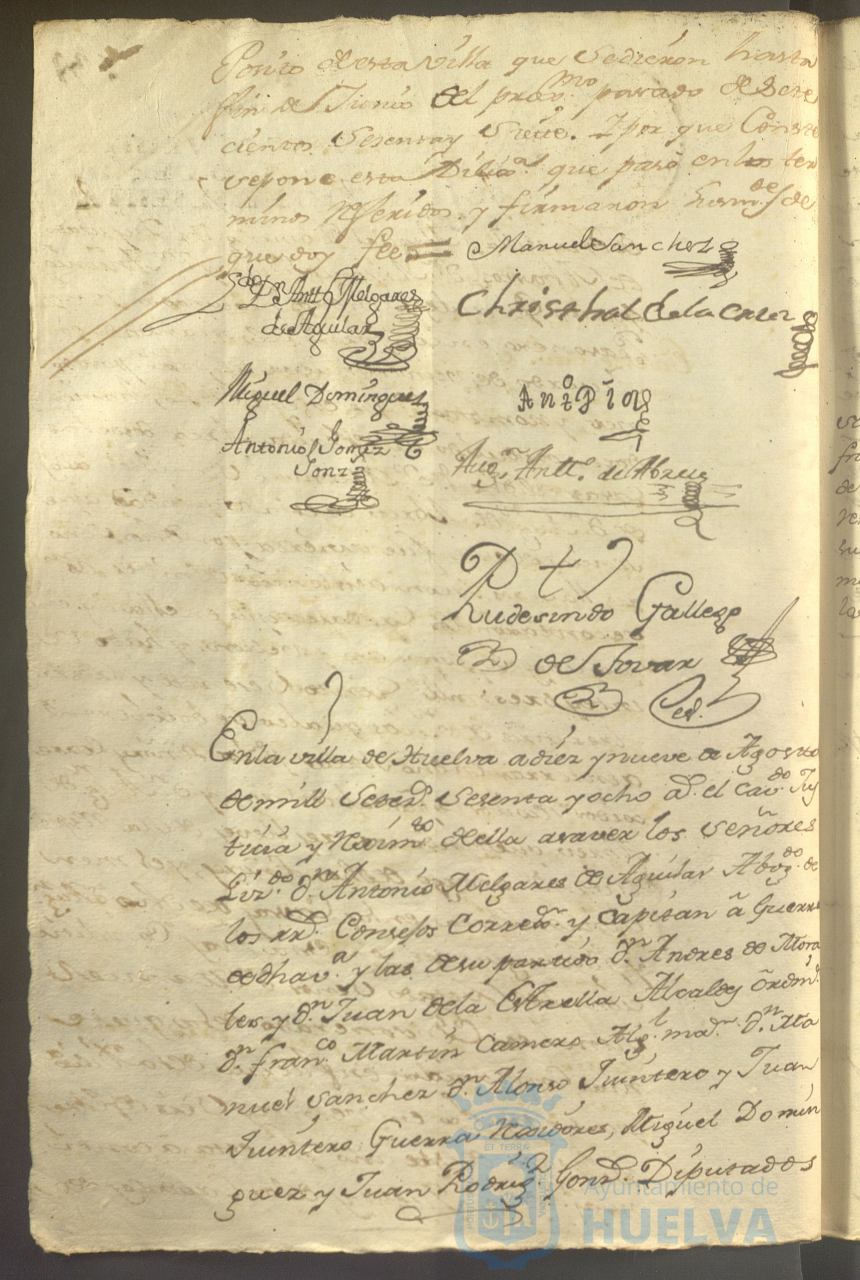 Posito de esta Villa que se dieron hasta
fin de Junio del prox.mo pasado de Sete
cientos sesenta y siete. Y por que Conste
se pone esta Dilig.a que pasó en los ter
minos referidos y firmaron sus m.des de
que doy fee =
Manuel Sanchez
L.do D.n Antt.o Melgares
de Aguilar
Christhal de la cruz
Miguel Dominguez
Ant.o Pio
Antonio Gomez
Gonz
Aug.n Antt.o de Abreu
Rudesindo Gallego
de Tovar
En la villa de Huelva a diez y nueve de Agosto
de mill Setez.s sesenta y ocho a.s el cav.do Jus
ticia y Rexim.to della a saver los señores
Liz.do d.n Antonio Melgares de Aguilar Abog.do de
los RR.s Consejos Correx.or y Capitan â Guerra
de dha v.a y las de su partido d.n Andres de Mora
les y d.n Juan de la Estrella Alcaldes õrdin.s
d.n fran.co Martin Camero Alg.l ma.r d.n Ma
nuel Sanchez d.n Alonso Quintero y Juan
Quintero Guerra Rexidores, Miguel Domin
guez y Juan Rodrig.z Gonz.s Diputados
Ayuntamiento de
HUELVA